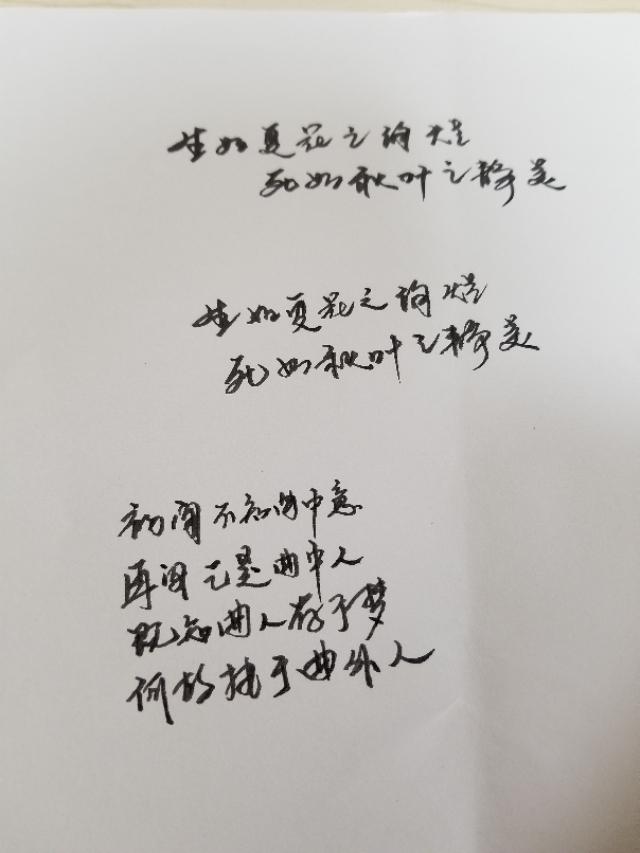 生如夏花之绚烂
死如秋叶之静美
生如夏花之绚烂
死如秋叶之静美
初闻不知曲中意
再闻已是曲中人
既知曲人存于梦
何故执于曲外人